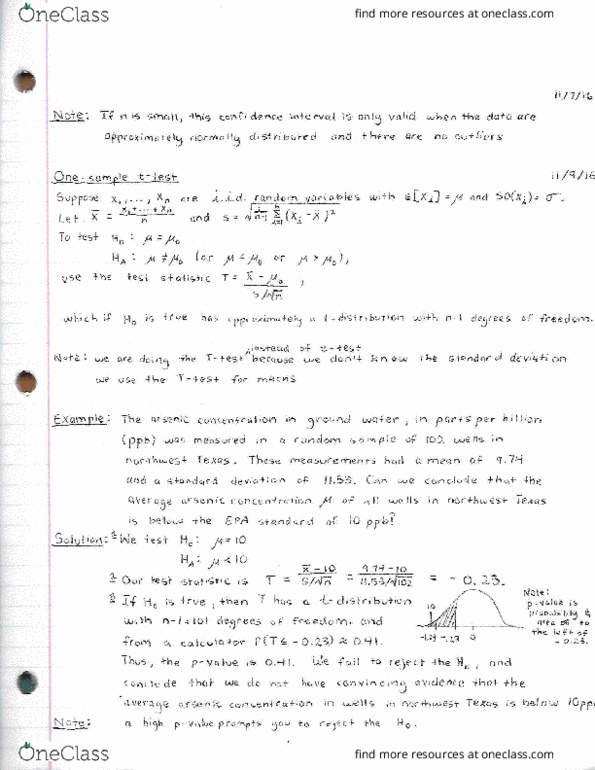 OneClass
find more resources at oneclass.com
11/7/16
Note: If n is small, this confidence interval is only valid when the data are
approximately normally distributed and there are no outliers
One-sample t-test
11/9/16
Suppose x₁,..., xₙ are i.i.d. random variables with E[Xᵢ] = μ and SD(Xᵢ) = σ.
Let x̄ = (x₁+...+xₙ)/n and s = √(1/(n-1) Σᵢ₌₁ⁿ (xᵢ - x̄)²)
To test H₀: μ = μ₀
H_A: μ ≠ μ₀ (or μ < μ₀ or μ > μ₀),
use the test statistic T = (x̄ - μ₀)/(s/√n),
which if H₀ is true has approximately a t-distribution with n-1 degrees of freedom.
Note: we are doing the T-test instead of z-test because we don't know the standard deviation
we use the T-test for means
Example: The arsenic concentration in ground water, in parts per billion
(ppb) was measured in a random sample of 102 wells in
northwest Texas. These measurements had a mean of 9.74
and a standard deviation of 11.53. Can we conclude that the
average arsenic concentration μ of all wells in northwest Texas
is below the EPA standard of 10 ppb?
Solution: We test H₀: μ = 10
H_A: μ < 10
2 Our test statistic is T = (x̄ - 10)/(s/√n) = (9.74 - 10)/(11.53/√102) = -0.23.
3 If H₀ is true, then T has a t-distribution
with n-1 = 101 degrees of freedom. and
from a calculator P(T ≤ -0.23) ≈ 0.41.
10
-.23
0
Note:
p-value is
probability &
area to
the left of
-0.23.
Thus, the p-value is 0.41. We fail to reject the H₀, and
conclude that we do not have convincing evidence that the
average arsenic concentration in wells in northwest Texas is below 10pp
Note: a high p-value prompts you to reject the H₀.
OneClass
find more resources at oneclass.com